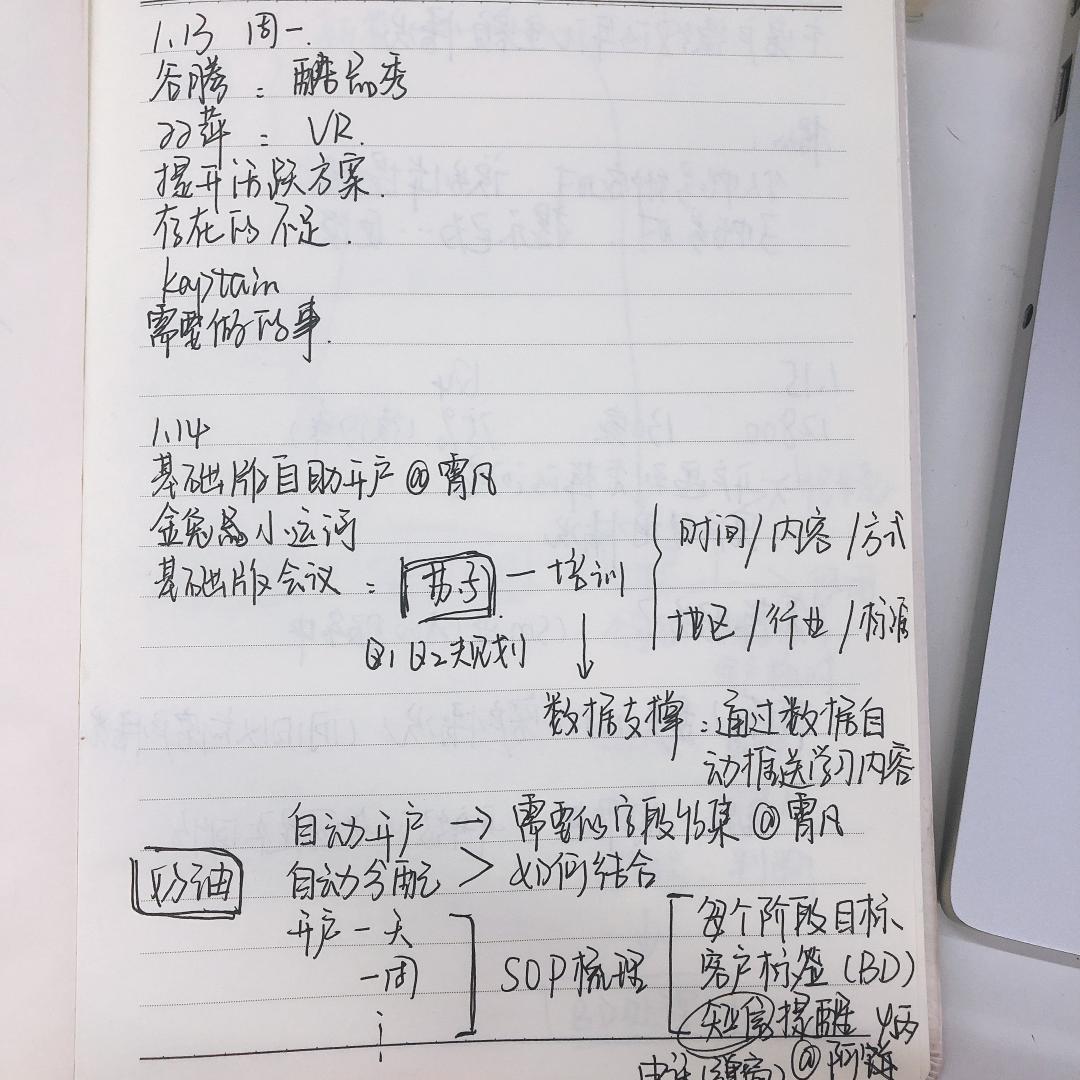 1.13 周一.
谷腾：酷品秀
双萍：VR.
提升活跃方案.
存在的不足.
kaptain
需要做的事.
1.14
基础版自助开户@霄凡
金兔 小运河
基础版会议：苏子一培训
时间/内容/方式
地区/行业/标准
Q1 Q2规划
数据支撑：通过数据自
动推送学习内容
自动开户→需要的字段收集@霄凡
奶油
自动分配>如何结合
开户一天
一周
SOP梳理
每个阶段目标
客户标签(BD)
短信提醒
@阿